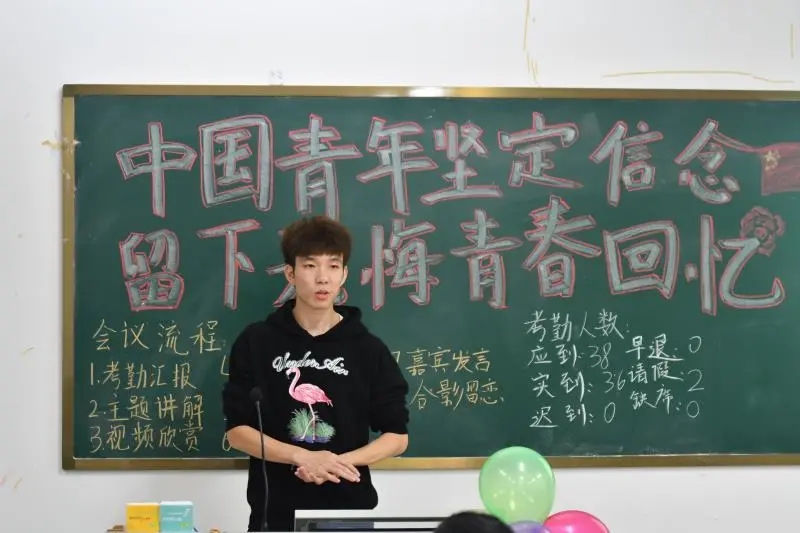 中国青年坚定信念
留下 悔青春回忆
会议流程
1.考勤汇报
2.主题讲解
3.视频欣赏
嘉宾发言
合影留恋
考勤人数:
应到:38 早退:0
实到:36 请假:2
迟到:0 缺席:0
Under Air